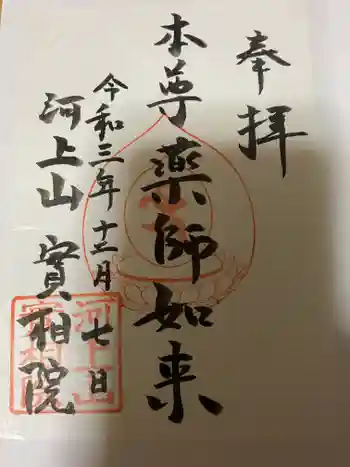 奉拝
本尊 薬師如来
令和三年十二月七日
河上山 實相院
河上山
實相院